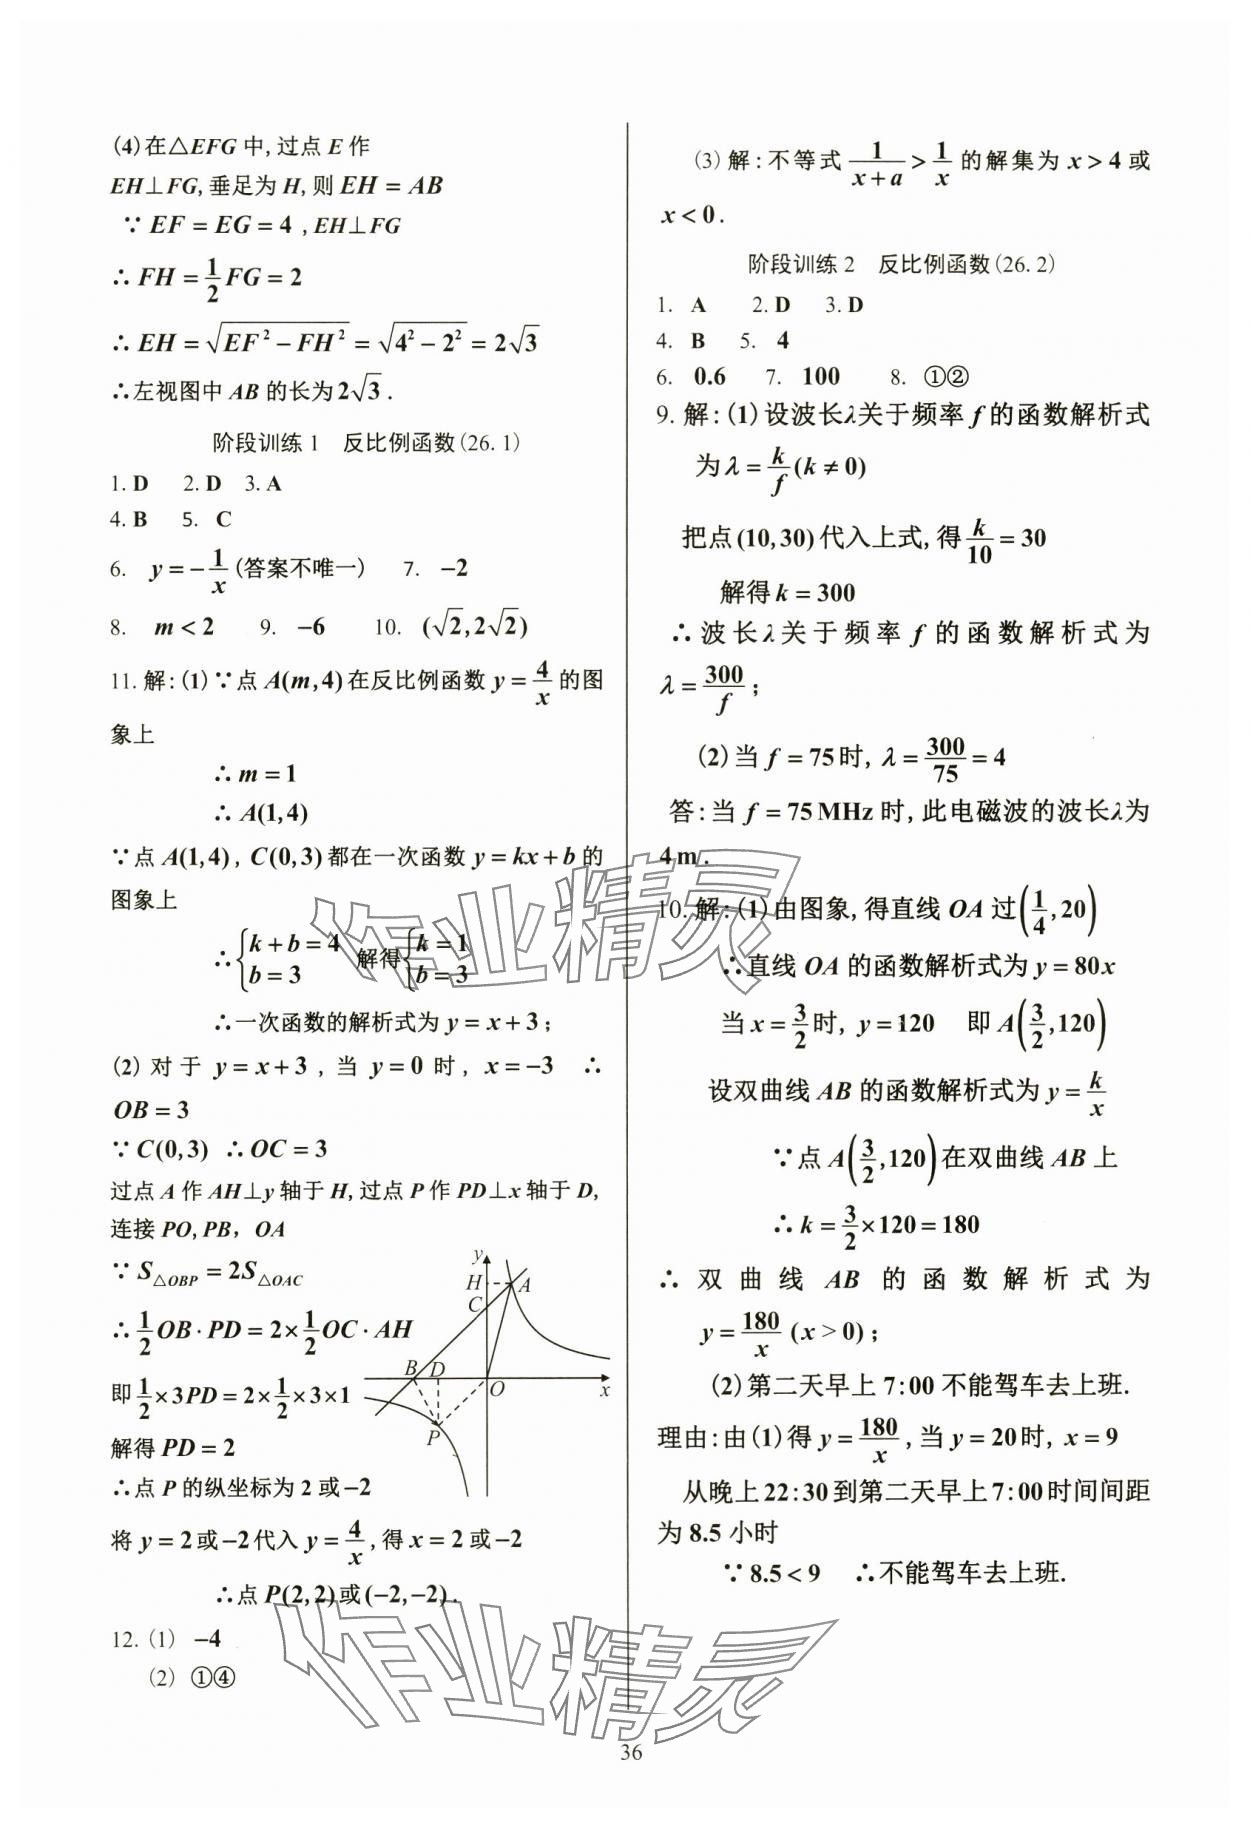 (4)在△EFG中,过点E作
EH⊥FG,垂足为H,则EH=AB
∵EF=EG=4,EH⊥FG
∴FH=1/2FG=2
∴EH=√(EF²-FH²)=√(4²-2²)=2√3
∴左视图中AB的长为2√3.
阶段训练1 反比例函数(26.1)
1.D 2.D 3.A
4.B 5. C
6. y=-1/x(答案不唯一) 7. -2
8. m<2 9. -6 10. (√2,2√2)
11.解:(1)∵点A(m,4)在反比例函数y=4/x的图
象上
∴m=1
∴A(1,4)
∵点A(1,4),C(0,3)都在一次函数y=kx+b的
图象上
∴{k+b=4 b=3 解得{k=1 b=3
∴一次函数的解析式为y=x+3;
(2)对于y=x+3,当y=0时,x=-3 ∴
OB=3
∵C(0,3) ∴OC=3
过点A作AH⊥y轴于H,过点P作PD⊥x轴于D,
连接PO,PB,OA
∵S△OBP=2S△OAC
∴1/2OB·PD=2×1/2OC·AH
即1/2×3PD=2×1/2×3×1
解得PD=2
∴点P的纵坐标为2或-2
y
H
A
C
B
D
O
x
P
将y=2或-2代入y=4/x,得x=2或-2
∴点P(2,2)或(-2,-2).
12.(1) -4
(2) ①④
(3)解:不等式1/(x+a)>1/x的解集为x>4或
x<0.
阶段训练2 反比例函数(26.2)
1. A 2.D 3.D
4. B 5. 4
6. 0.6 7. 100 8. ①②
9.解:(1)设波长λ关于频率f的函数解析式
为λ=k/f(k≠0)
把点(10,30)代入上式,得k/10=30
解得k=300
∴波长λ关于频率f的函数解析式为
λ=300/f;
(2)当f=75时,λ=300/75=4
答:当f=75MHz时,此电磁波的波长λ为
4m.
10.解:(1)由图象,得直线OA过(1/4,20)
∴直线OA的函数解析式为y=80x
当x=3/2时,y=120 即A(3/2,120)
设双曲线AB的函数解析式为y=k/x
∵点A(3/2,120)在双曲线AB上
∴k=3/2×120=180
∴双曲线AB的函数解析式为
y=180/x(x>0);
(2)第二天早上7:00不能驾车去上班.
理由:由(1)得y=180/x,当y=20时,x=9
从晚上22:30到第二天早上7:00时间间距
为8.5小时
∵8.5<9 ∴不能驾车去上班.
作业精灵
作业精灵
36